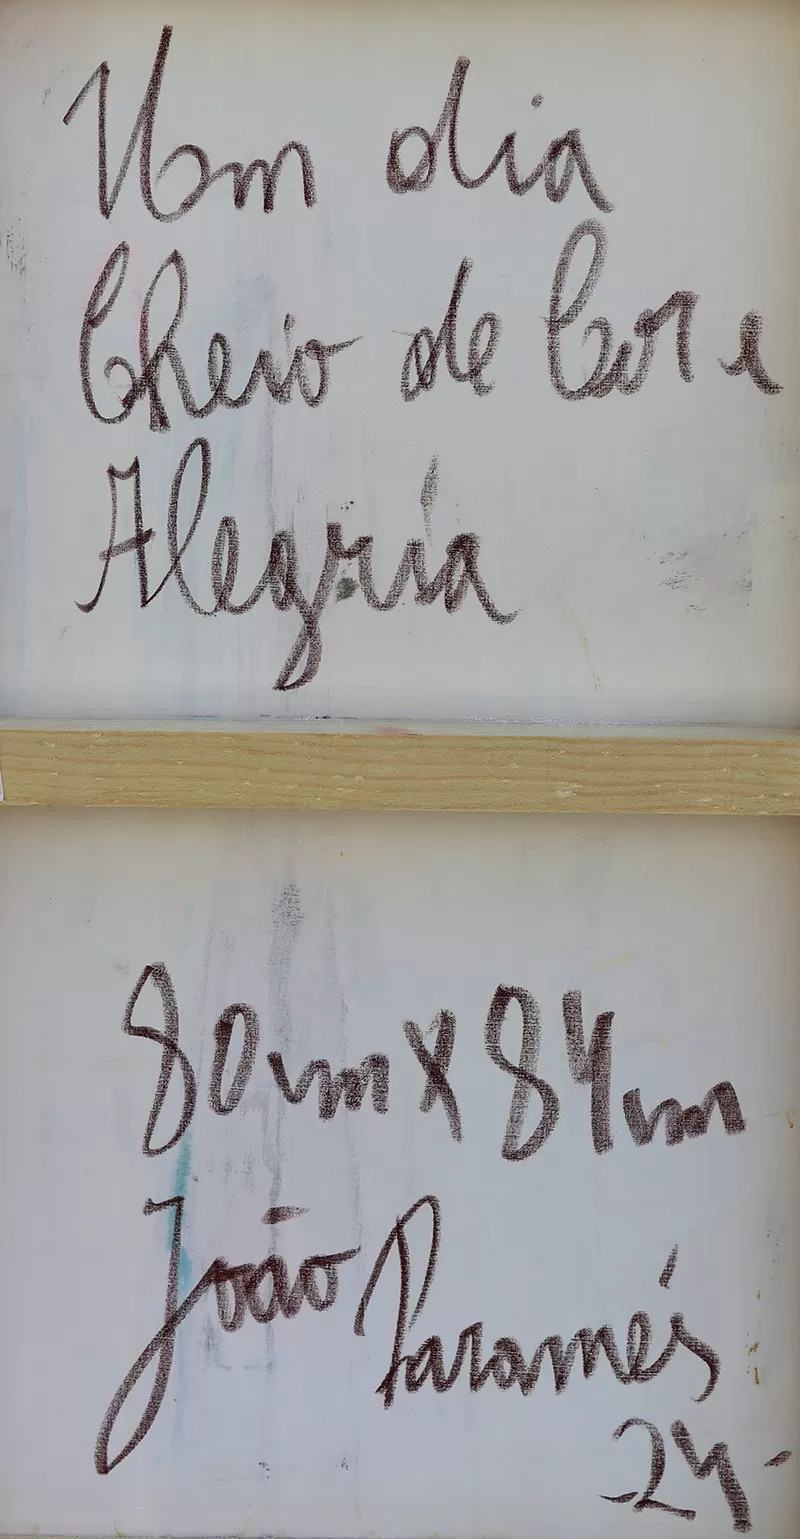 Um dia
Cheio de Cor e
Alegria
80cm X 84cm
João Paramés
-24-